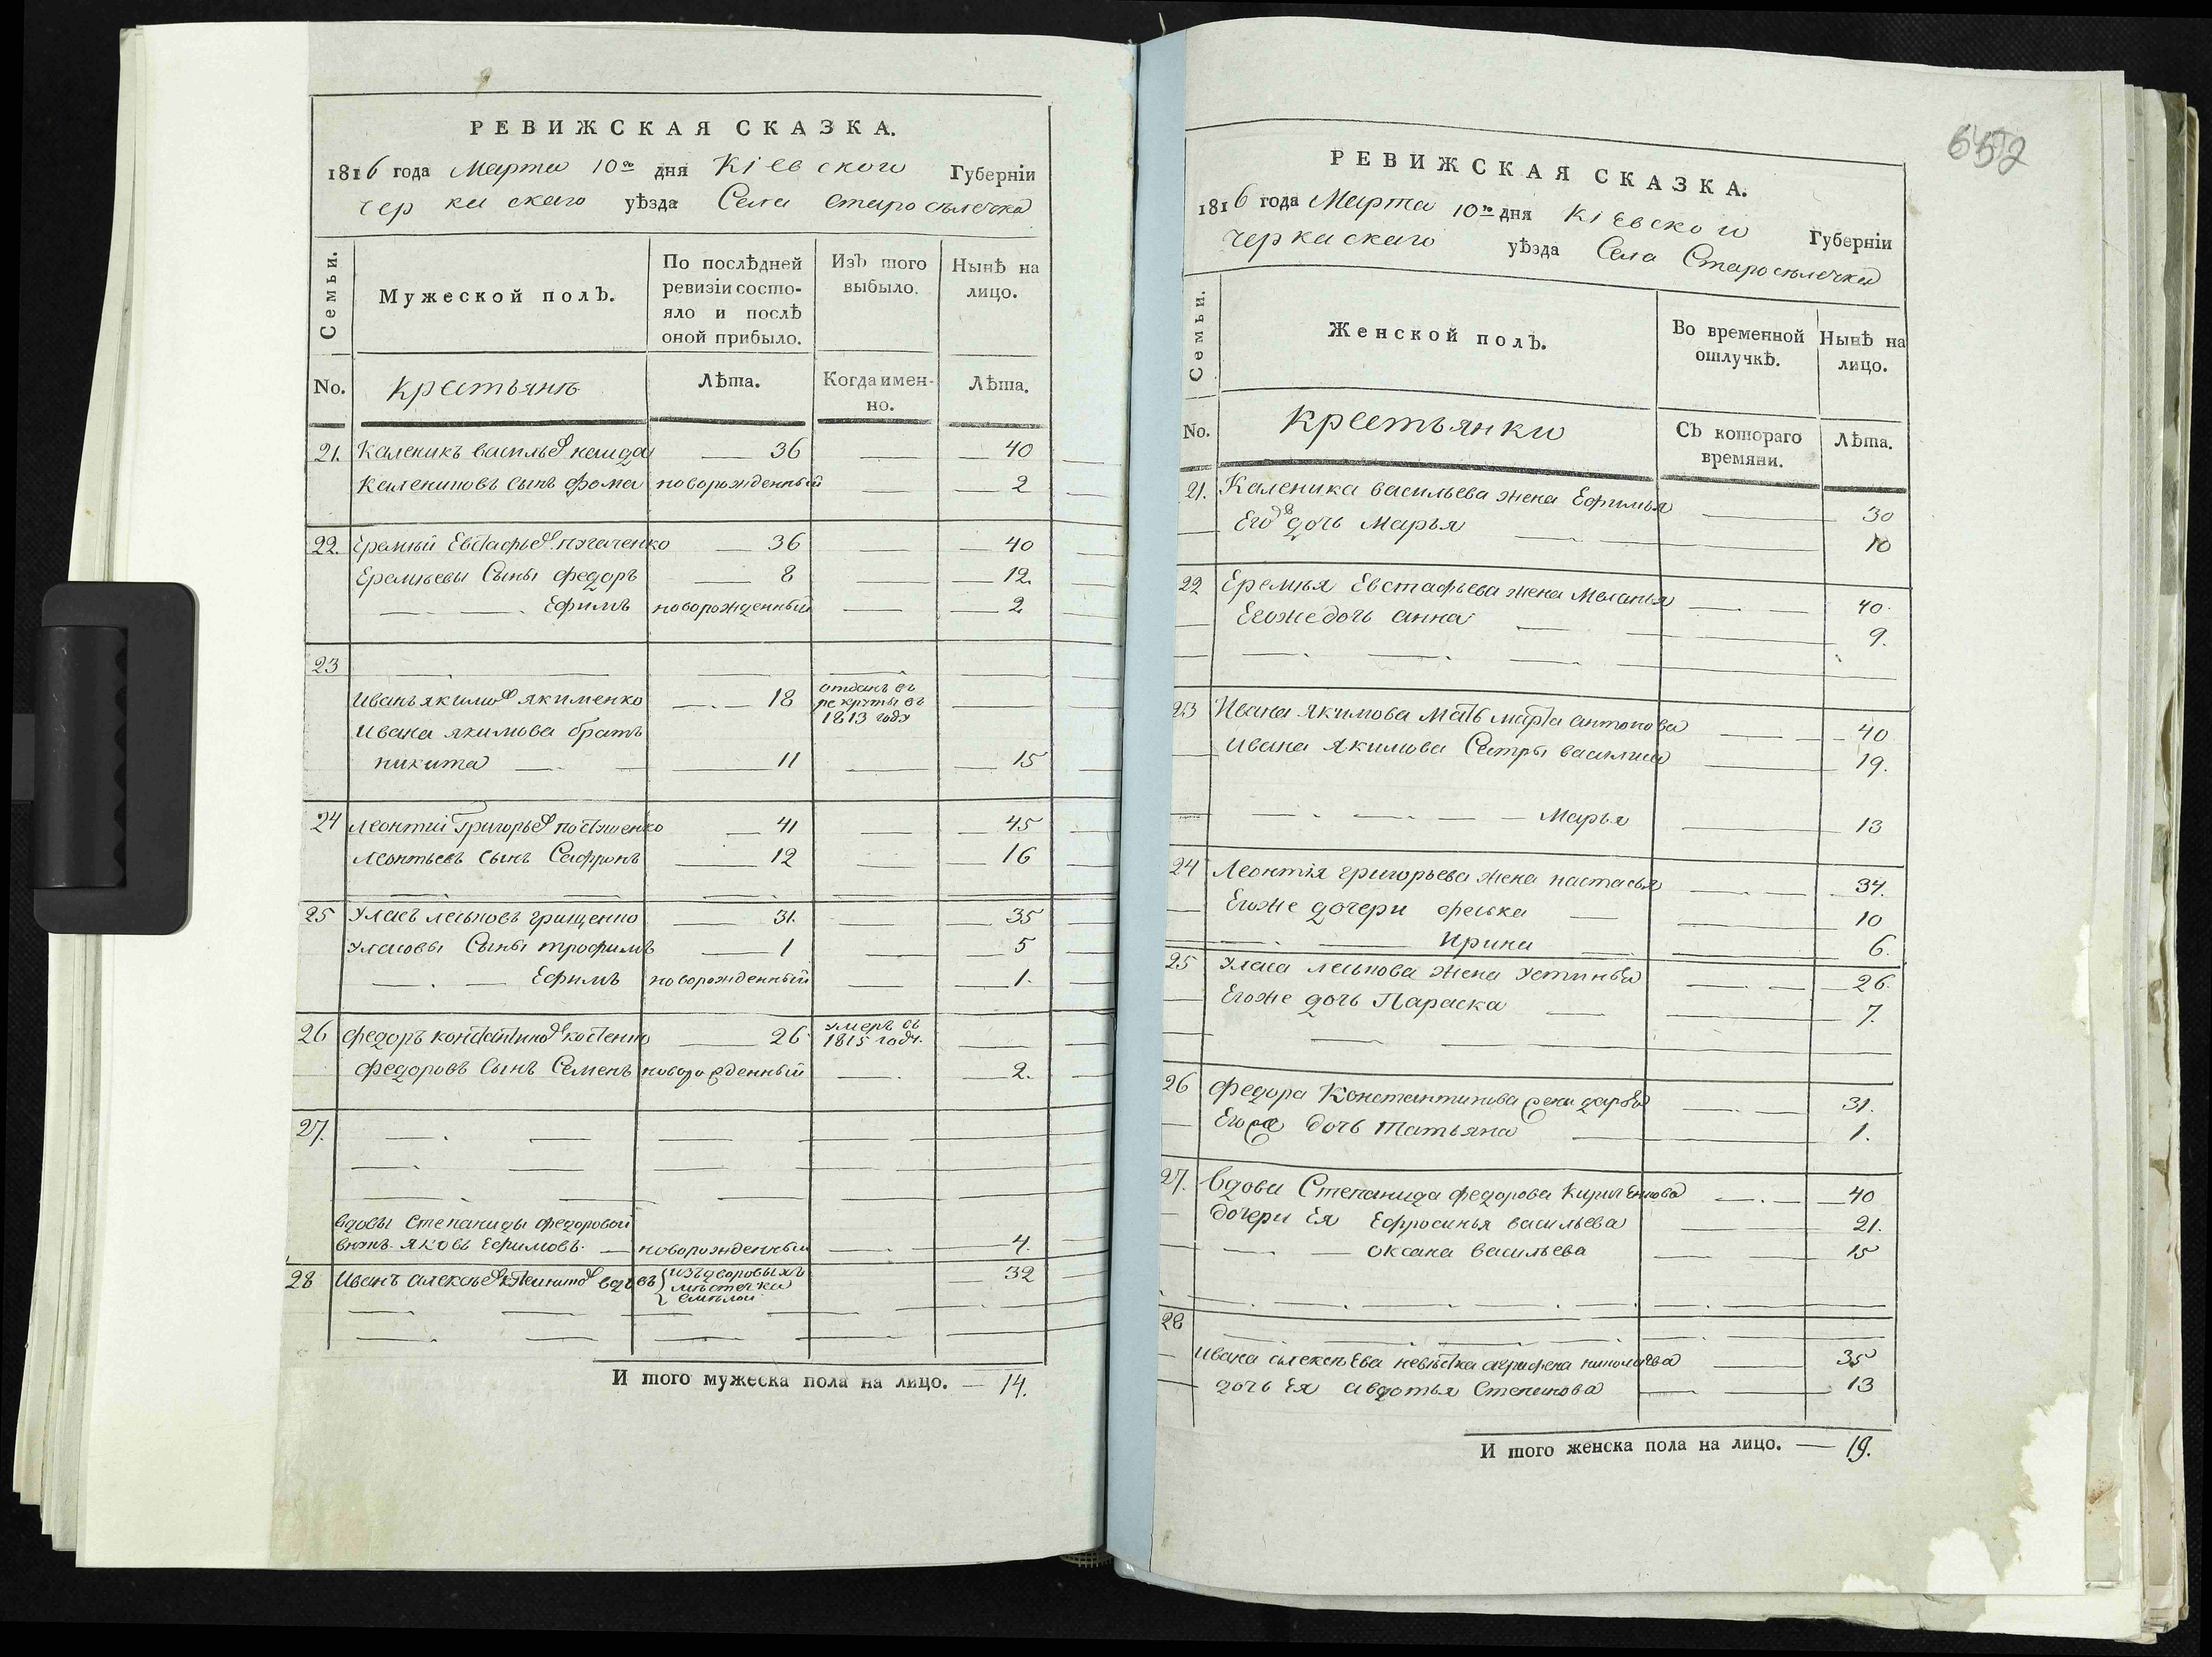 РЕВИЖСКАЯ СКАЗКА.
1816 года Марта 10го дня Кіевскои Губерніи
черкаскаго уѣзда Села Старосѣлечка
Семьи.
Мужеской полъ.
По послѣдней ревизіи состояло и послѣ оной прибыло.
Изъ того выбыло.
Нынѣ на лицо.
No. крестьянѣ Лѣта. Когда именно. Лѣта.
21. Каленикъ васильев 36 40
Калениковъ сынъ фома новорожденный 2
22. Еремѣй Евстафьев 36 40
Еремѣевы Сыны федоръ 8 12.
Ефимъ новорожденный 2
23
Иванъ якимов якименко 18 отданъ въ рекруты въ 1813 году
Ивана якимова братъ
никита 11 15
24 Леонтій Григорьев 41 45
Леонтьевъ сынъ Сафронъ 12 16
25 Уласъ леськовъ грищенко 31. 35
уласовы Сыны трофимъ 1 5
Ефимъ новорожденный 1.
26 федоръ константинов костенко 26 умеръ въ 1815 году.
федоровъ Сынъ Семенъ новорожденный 2.
27.
вдовы степаниды федоровой
внукъ яковъ Ефимовъ новорожденный 4.
28 Иванъ алексѣев вдовъ изъ дворовыхъ мѣстечка смѣлой 32
И того мужеска пола на лицо. — 14.
652
РЕВИЖСКАЯ СКАЗКА.
1816 года Марта 10го дня Кіевскои Губерніи
черкаскаго уѣзда Села Старосѣлечка
Семьи.
Женской полъ.
Во временной отлучкѣ.
Нынѣ на лицо.
No. крестьянки Съ котораго времяни. Лѣта.
21. Каленика васильева жена Ефимья 30
Его дочь Марья 10
22 Еремѣя Евстафьева жена Меланья 40.
Егоже дочь анна 9.
23 Ивана якимова мать марfа антонова 40
Ивана якимова Сестры василиса 19.
Марья 13
24 Леонтія григорьева жена настасья 34.
Егоже дочери феська 10
Ирина 6.
25 Уласа леськова жена устинья 26.
Егоже дочь Параска 7.
26 федора Константинова жена дарья 31.
Егоже дочь татьяна 1.
27. вдова Степанида федорова 40
дочери Ея Ефросинья васильева 21.
оксана васильева 15
28
Ивана алексѣева невѣстка агрифена николаева 35
дочь Ея авдотья Степанова 13
И того женска пола на лицо. — 19.